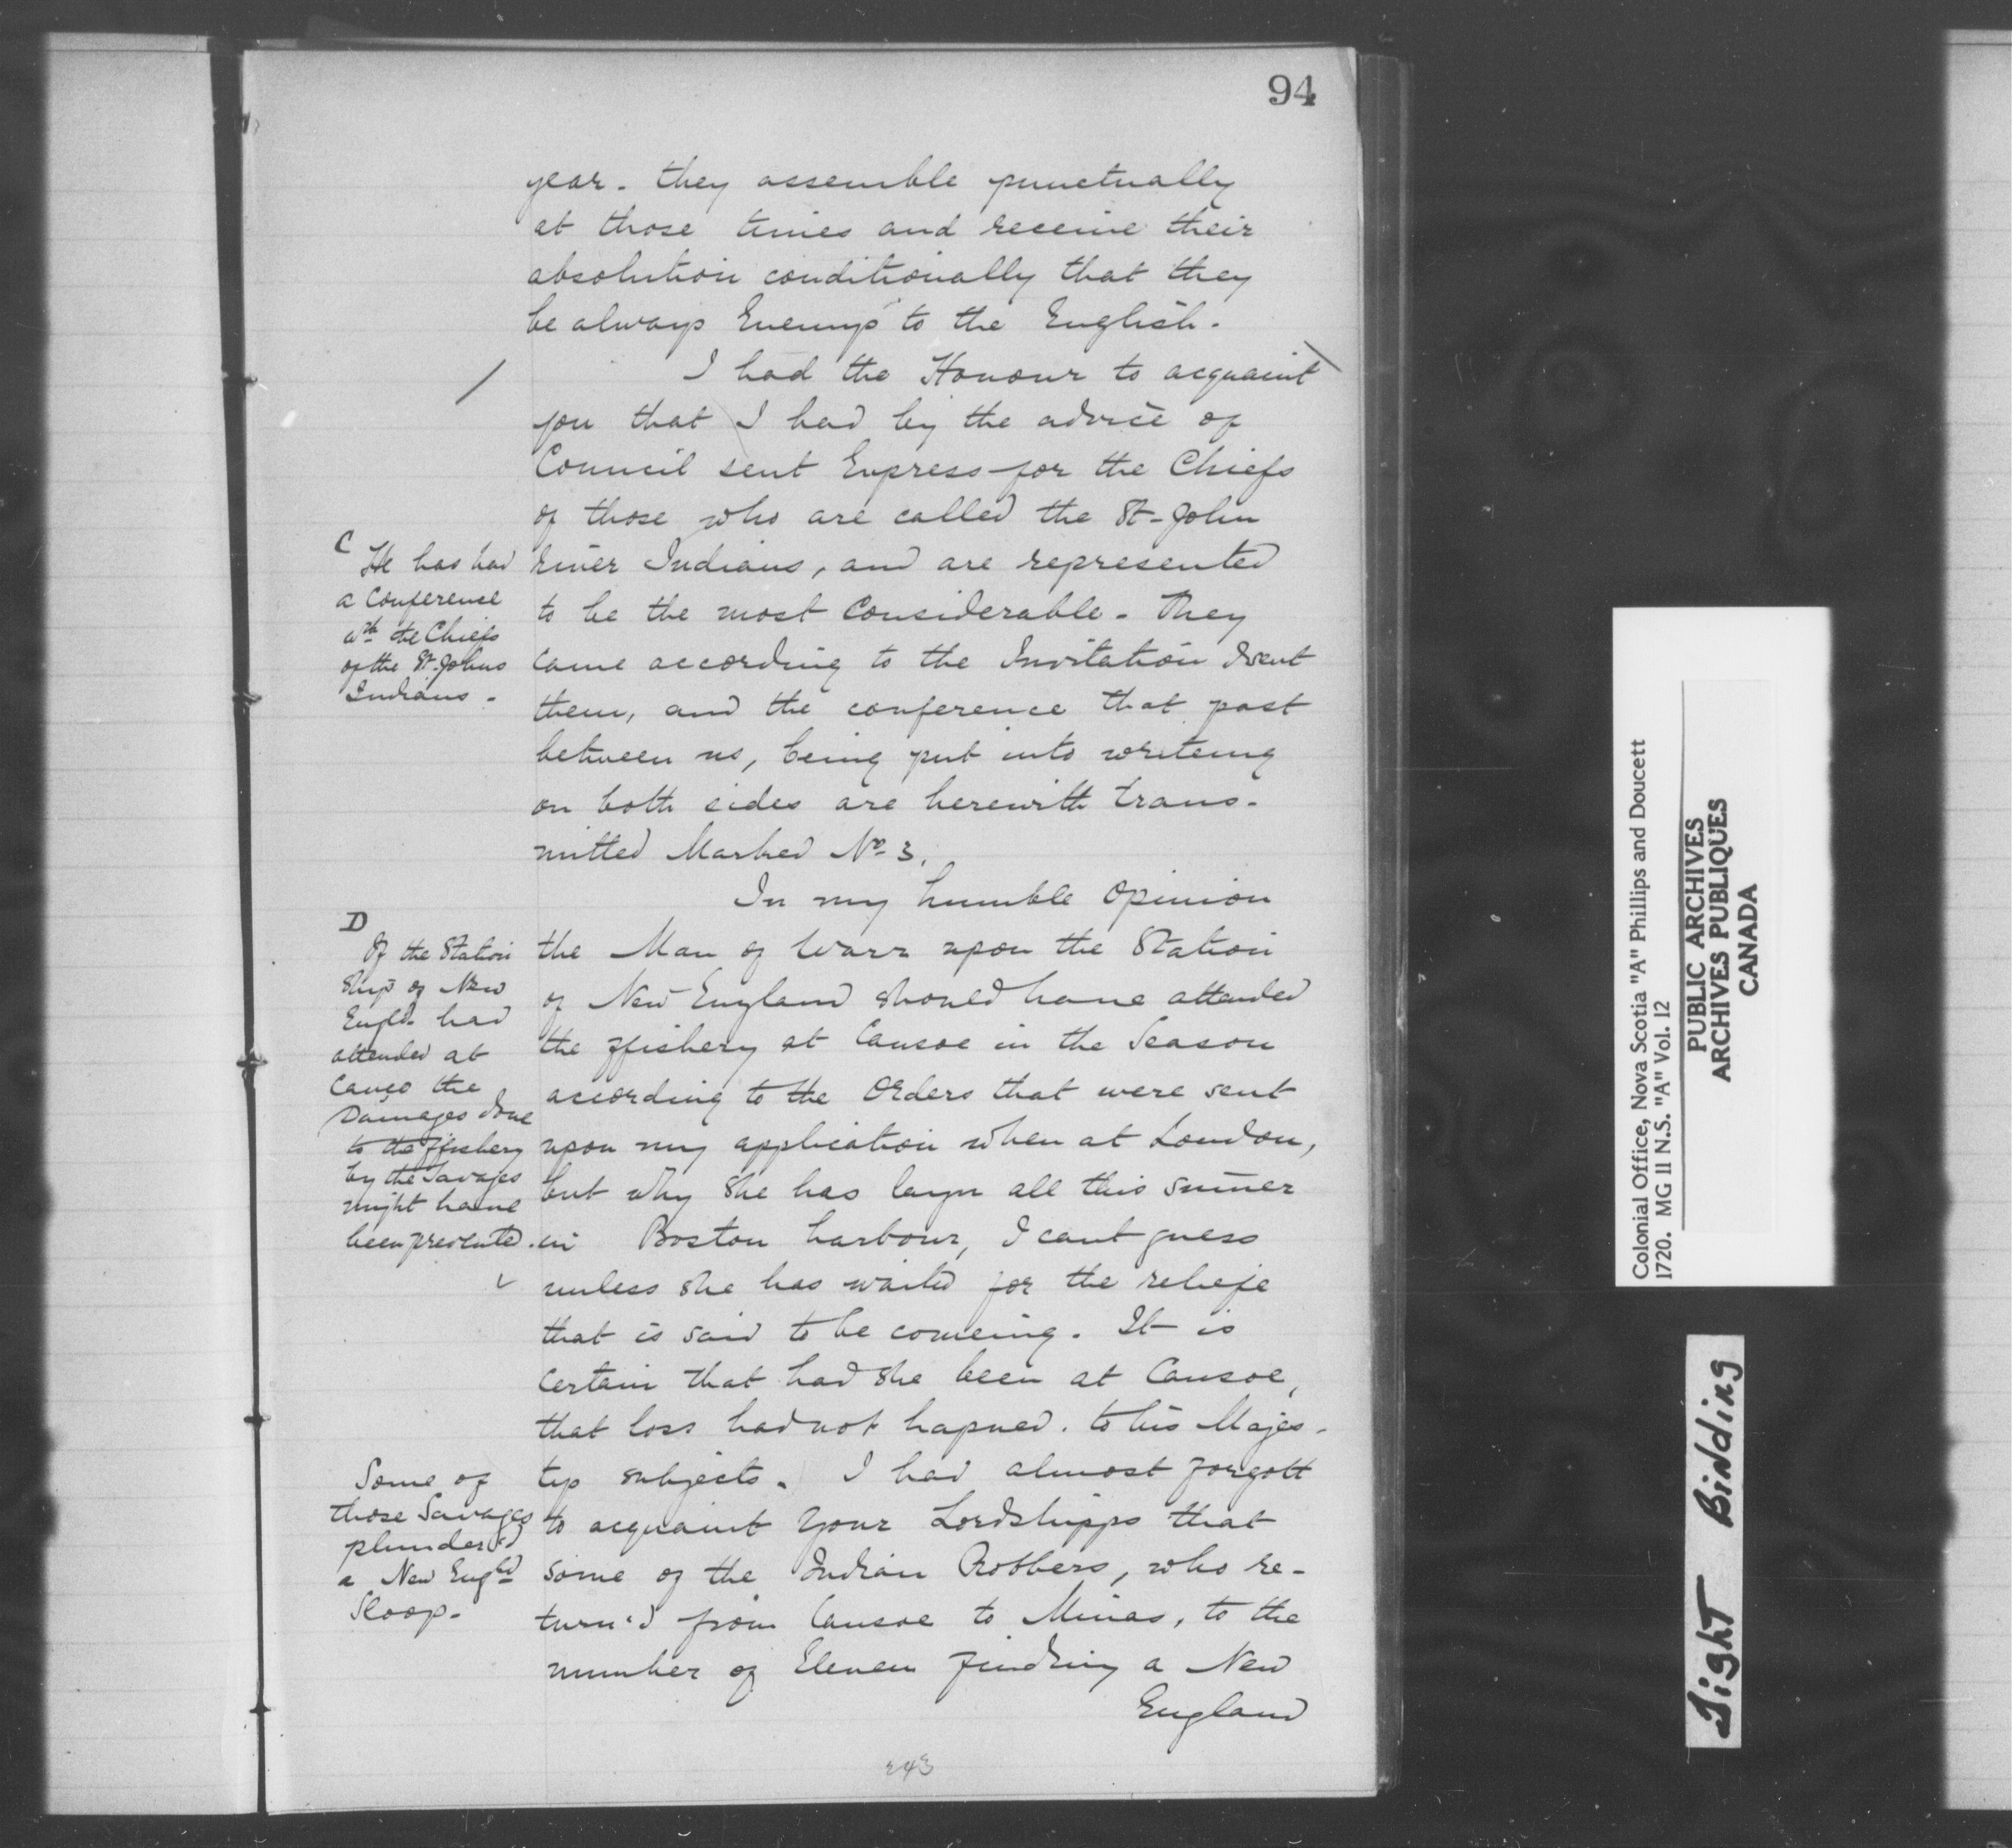 94
year. they assemble punctually
at those times and receive their
absolution conditionally that they
be always Enemys to the English.
I had the Honour to acquaint
you that I had by the advice of
Council sent Express for the Chiefs
of those who are called the St-John
C
He has had
a Conference
wth the Chiefs
of the St. Johns
Indians.
River Indians, and are represented
to be the most Considerable. They
came according to the Invitation I sent
them, and the conference that past
between us, being put into writeing
on both sides are herewith trans-
mitted Marked No 3.
In my humble opinion
D
If the Station
Ship of New
Engld. had
attended at
Canço the
Damages done
to the ffishery
by the Savages
might have
been prevented.
the Man of Warr upon the Station
of New England should have attended
the ffishery at Cansoe in the Season
according to the Orders that were sent
upon my application when at London,
but why she has layn all this sumer
in Boston harbour, I cant guess
unless she has waited for the reliefe
that is said to be comeing. It is
Certain that had she been at Cansoe,
that loss had not hapned. to his Majes-
tys subjects. I had almost forgott
Some of
those Savages
plunder'd
a New Engld
Sloop.
to acquaint Your Lordshipps that
some of the Indian Robbers, who re-
turn'd from Cansoe to Minas, to the
number of Eleven finding a New
England
243
Colonial Office, Nova Scotia "A" Phillips and Doucett
1720. MG II N.S. "A" Vol. 12
PUBLIC ARCHIVES
ARCHIVES PUBLIQUES
CANADA
Tight Bidding